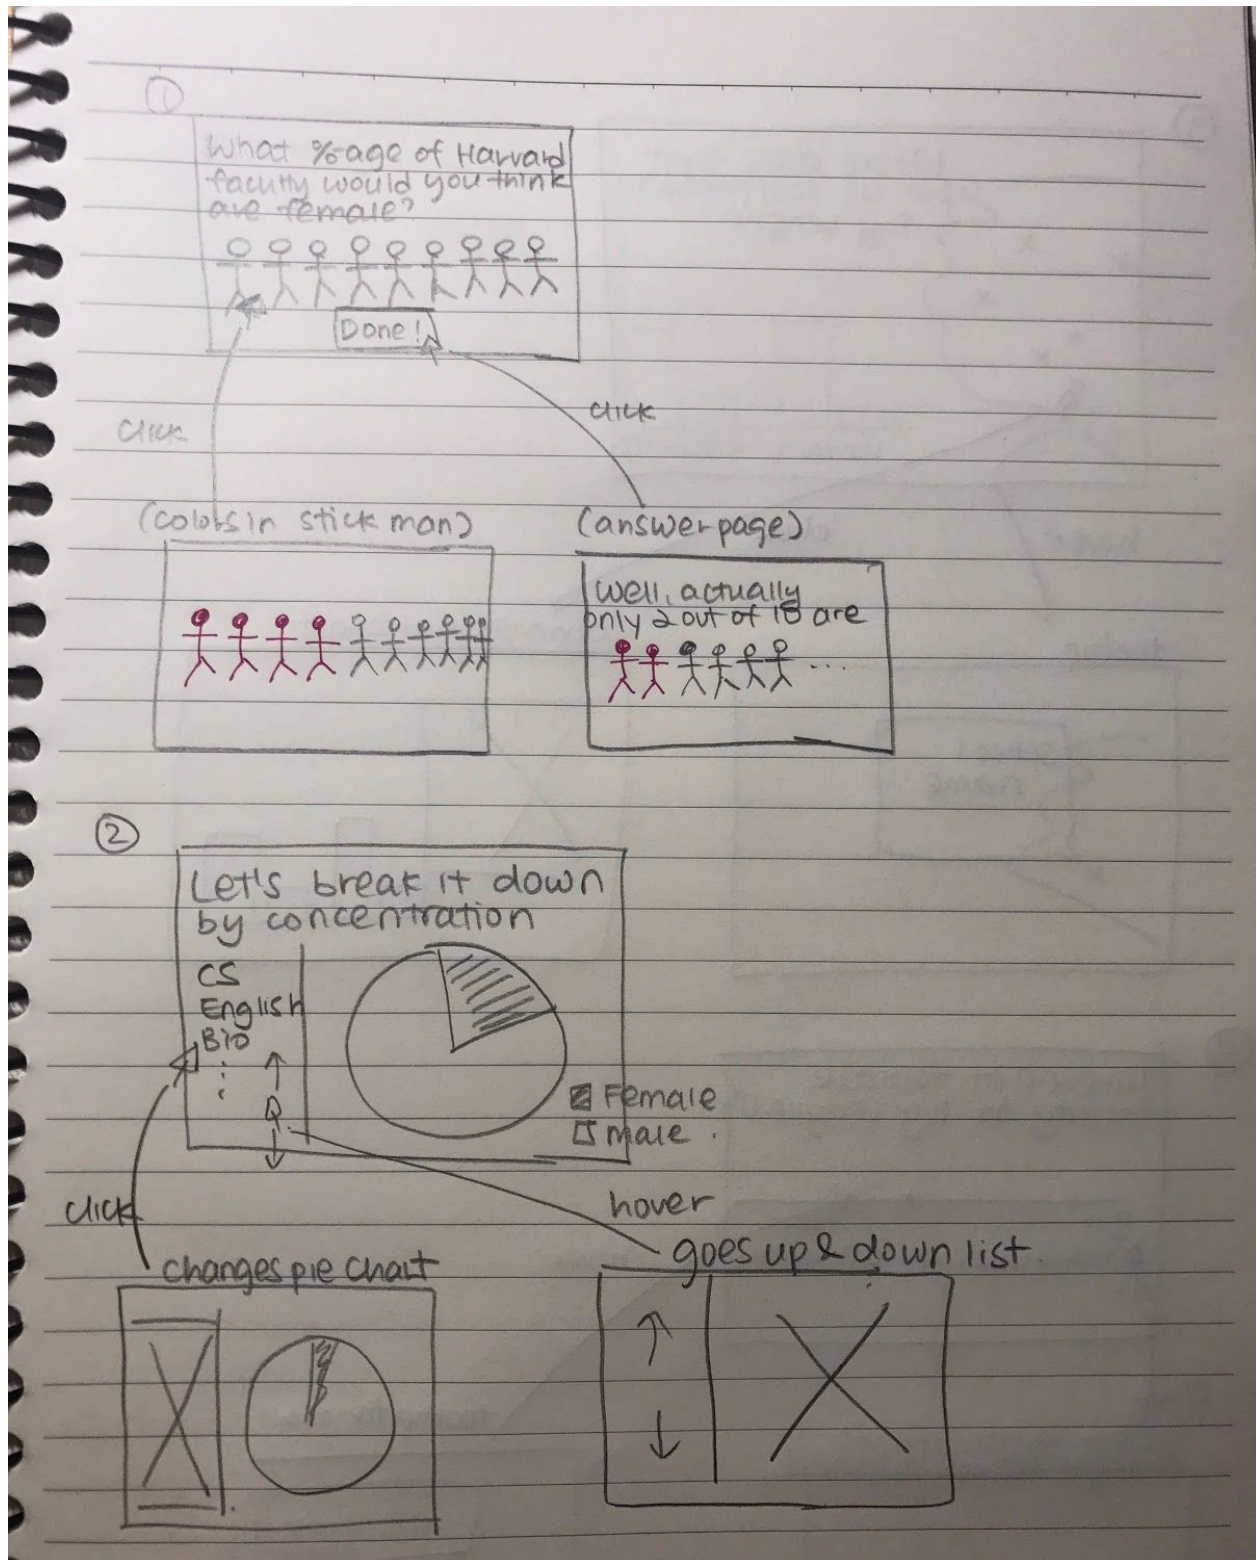 ①
What %age of Harvard
faculty would you think
are female?
Done!
click
click
(colors in stick man)
(answer page)
Well, actually
only 2 out of 10 are
...
②
Let's break it down
by concentration
CS
English
Bio
Female
male
click
hover
changes pie chart
goes up & down list.